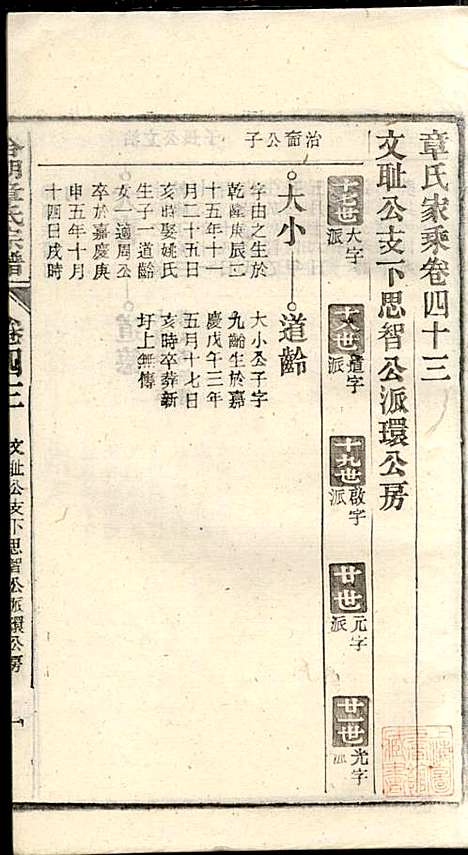 章氏家乘卷四十三
文耻公支下思智公派環公房
十七世 大字派
十八世 道字派
十九世 啟字派
廿世 元字派
廿一世 光字派
治齋公子
大小
道齡
字由之生於
乾隆庚辰二
十五年十一
月二十五日
亥時娶姚氏
生子一道齡
女一適周公
卒於嘉慶庚
申五年十月
十四日戌時
大小公子字
九齡生於嘉
慶戊午三年
五月十七日
亥時卒葬新
圩上無傳
章氏宗譜
卷四十三
文耻公支下思智公派環公房
一